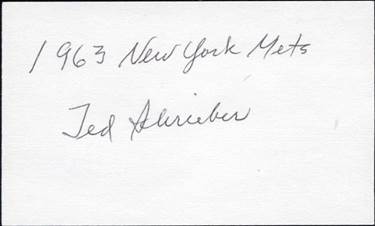 1963 New York Mets
Ted Schreiber